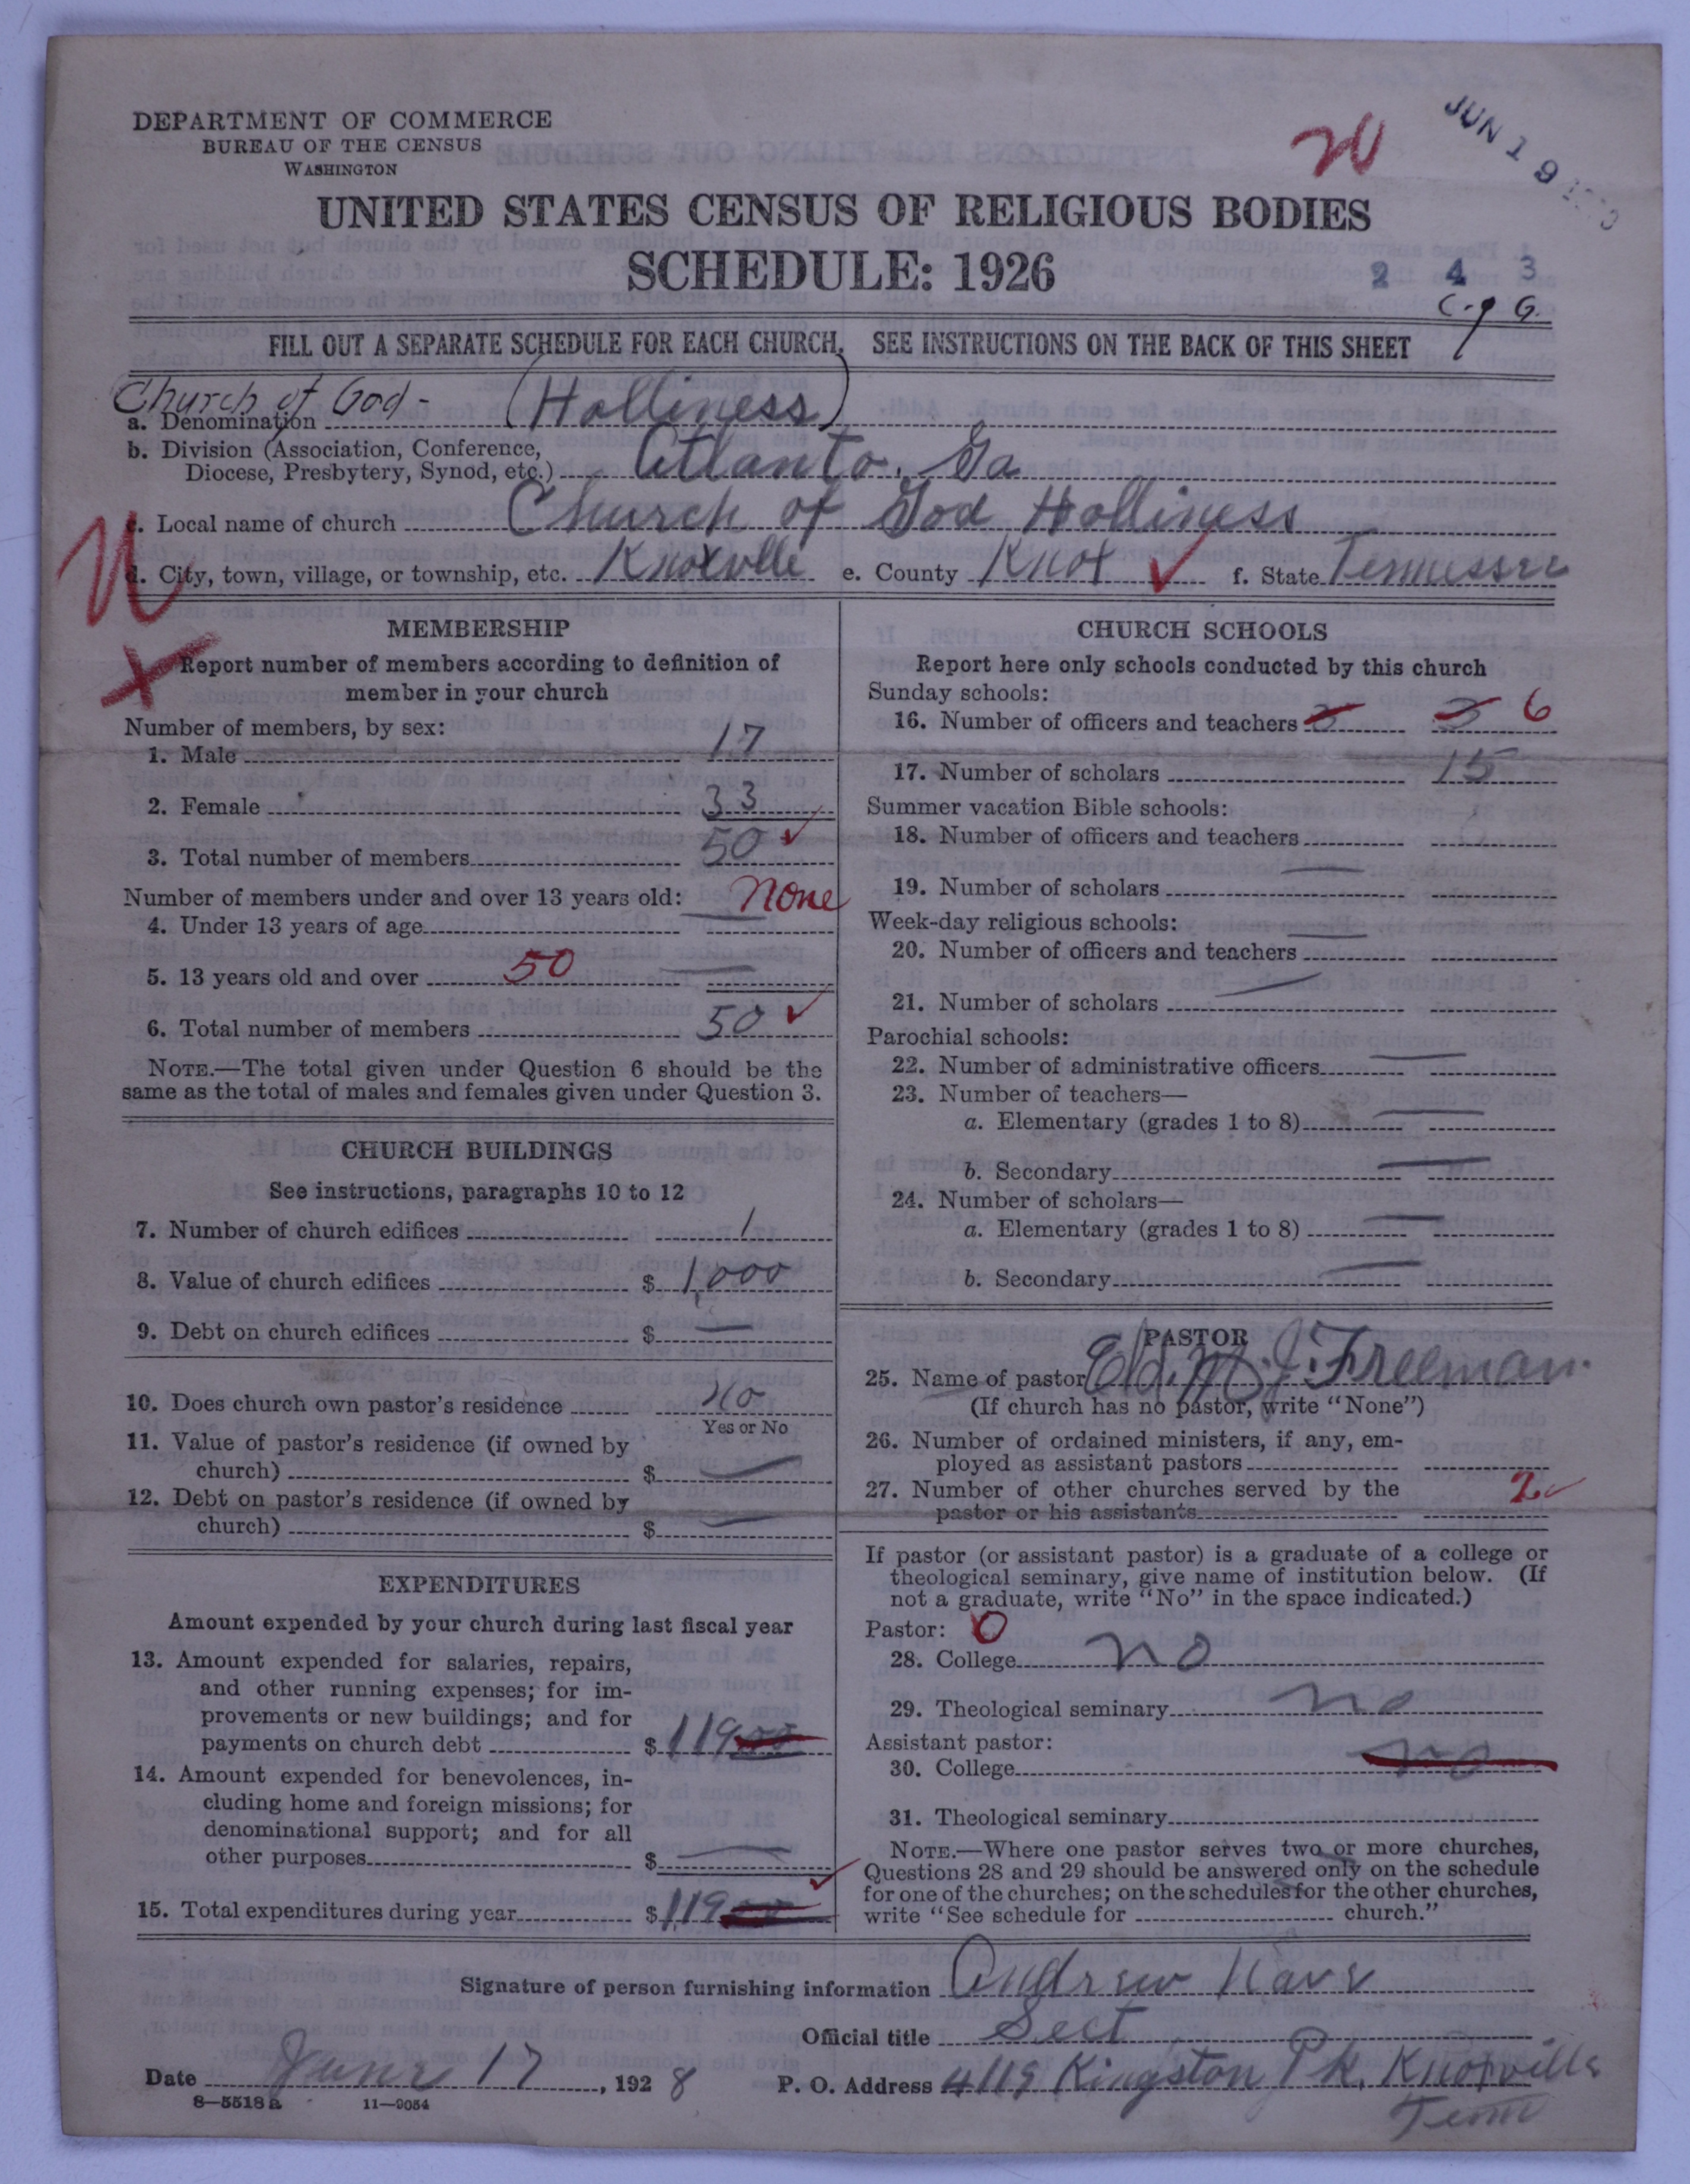 DEPARTMENT OF COMMERCE
BUREAU OF THE CENSUS
WASHINGTON
JUN 19
UNITED STATES CENSUS OF RELIGIOUS BODIES
SCHEDULE: 1926
2 4 3
C. of G.
FILL OUT A SEPARATE SCHEDULE FOR EACH CHURCH. SEE INSTRUCTIONS ON THE BACK OF THIS SHEET
Church of God - (Holliness)
a. Denomination
b. Division (Association, Conference,
Diocese, Presbytery, Synod, etc.) Atlanta. Ga
c. Local name of church Church of God Holliness
d. City, town, village, or township, etc. Knoxville e. County Knox f. State Tennessee
MEMBERSHIP
Report number of members according to definition of
member in your church
Number of members, by sex:
1. Male 17
2. Female 33
3. Total number of members 50
Number of members under and over 13 years old: None
4. Under 13 years of age
5. 13 years old and over 50
6. Total number of members 50
NOTE.—The total given under Question 6 should be the
same as the total of males and females given under Question 3.
CHURCH BUILDINGS
See instructions, paragraphs 10 to 12
7. Number of church edifices 1
8. Value of church edifices $ 1,000
9. Debt on church edifices $ —
10. Does church own pastor's residence No
Yes or No
11. Value of pastor's residence (if owned by
church) $ —
12. Debt on pastor's residence (if owned by
church) $ —
EXPENDITURES
Amount expended by your church during last fiscal year
13. Amount expended for salaries, repairs,
and other running expenses; for im-
provements or new buildings; and for
payments on church debt $ 119 00
14. Amount expended for benevolences, in-
cluding home and foreign missions; for
denominational support; and for all
other purposes $ —
15. Total expenditures during year $ 119 00
CHURCH SCHOOLS
Report here only schools conducted by this church
Sunday schools:
16. Number of officers and teachers 3 3 6
17. Number of scholars 15
Summer vacation Bible schools:
18. Number of officers and teachers
19. Number of scholars —
Week-day religious schools:
20. Number of officers and teachers —
21. Number of scholars —
Parochial schools:
22. Number of administrative officers —
23. Number of teachers—
a. Elementary (grades 1 to 8) —
b. Secondary —
24. Number of scholars—
a. Elementary (grades 1 to 8) —
b. Secondary —
PASTOR
25. Name of pastor Eld. M. J. Freeman.
(If church has no pastor, write "None")
26. Number of ordained ministers, if any, em-
ployed as assistant pastors
27. Number of other churches served by the 2
pastor or his assistants
If pastor (or assistant pastor) is a graduate of a college or
theological seminary, give name of institution below. (If
not a graduate, write "No" in the space indicated.)
Pastor: 0
28. College no
29. Theological seminary no
Assistant pastor:
30. College no
31. Theological seminary
NOTE.—Where one pastor serves two or more churches,
Questions 28 and 29 should be answered only on the schedule
for one of the churches; on the schedules for the other churches,
write "See schedule for church."
Signature of person furnishing information Andrew Nave
Official title Sect
Date June 17, 1928 P. O. Address 4119 Kingston Pk. Knoxville
Tenn
8—5518a 11—9054